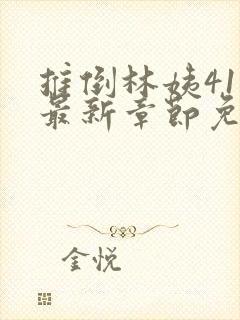 推倒林姨41
最新章节免
金悦